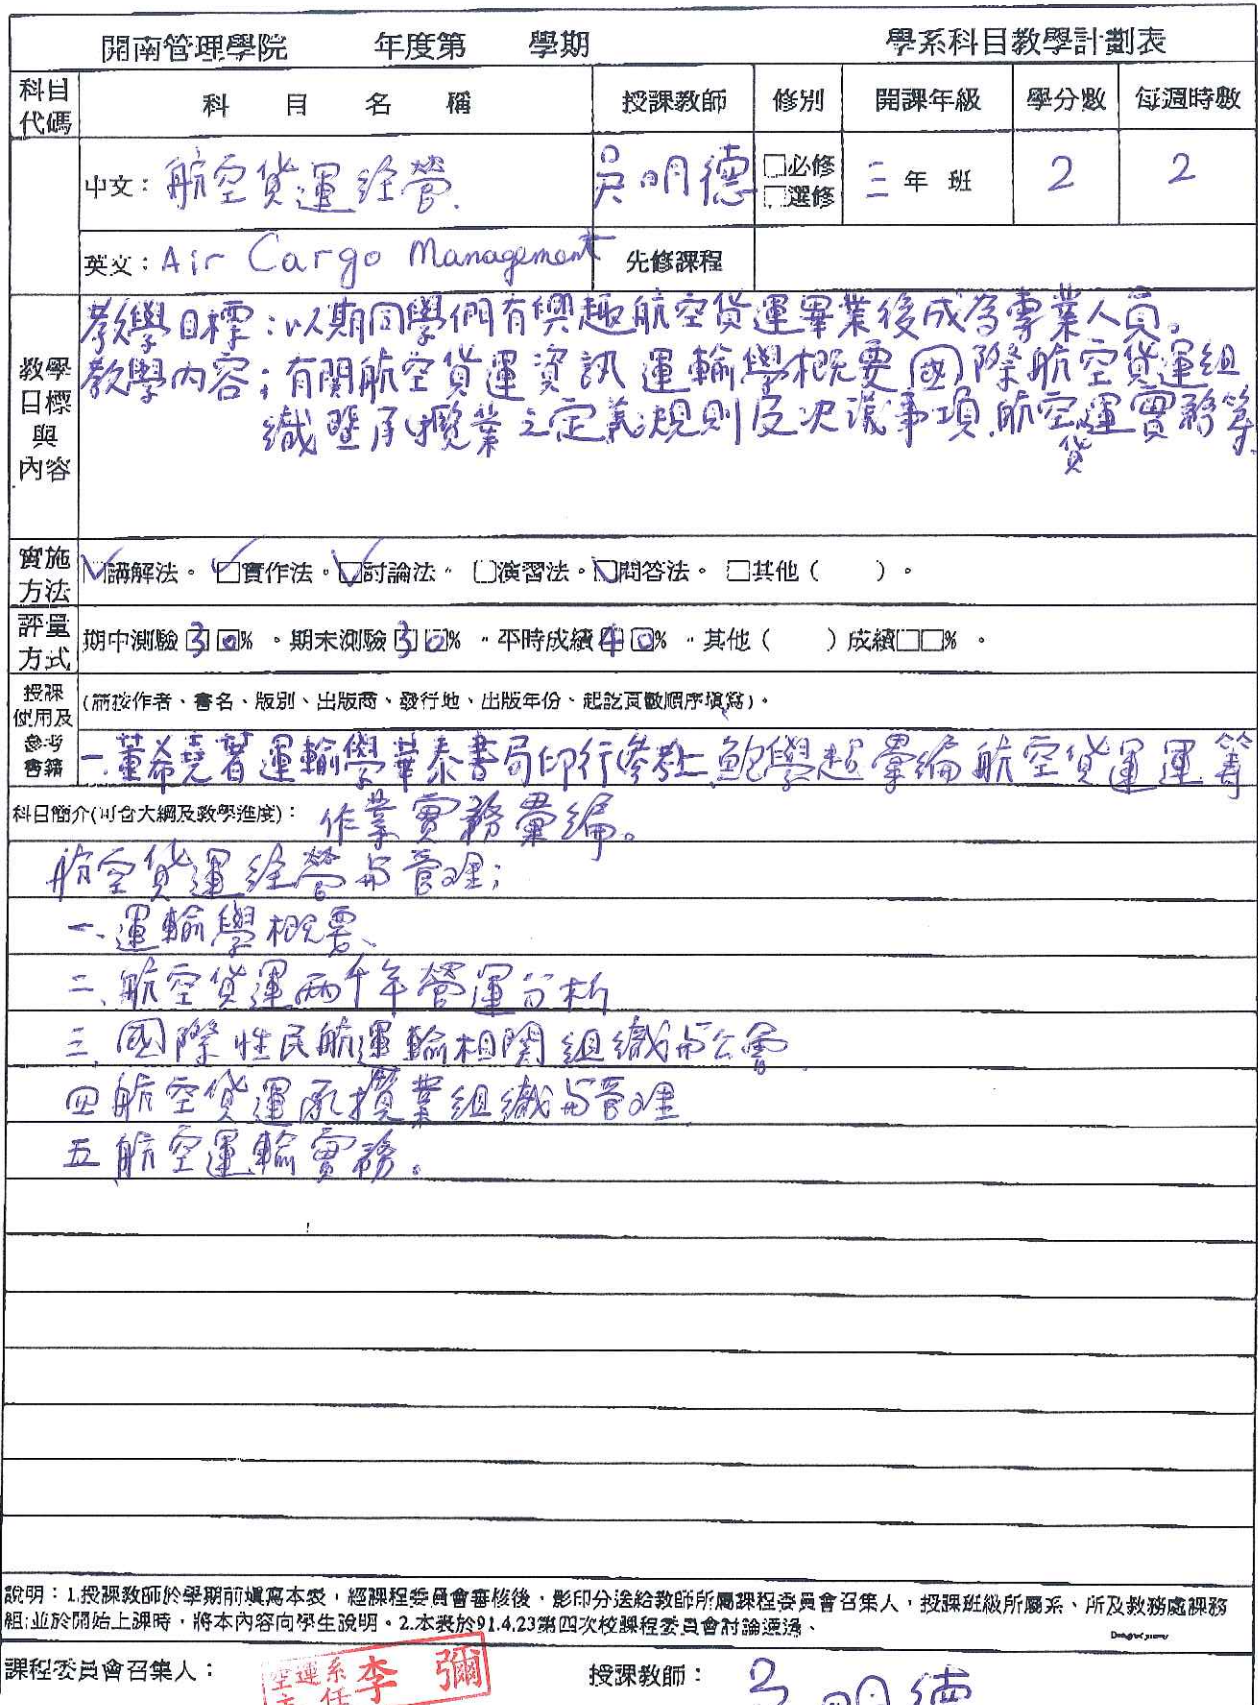 開南管理學院 年度第 學期 學系科目教學計劃表
科目代碼 科目名稱 授課教師 修別 開課年級 學分數 每週時數
中文：航空貨運經營. 吳明德 □必修 □選修 三年 班 2 2
英文：Air Cargo Management 先修課程
教學目標與內容
教學目標：以期同學們有興趣航空貨運畢業後成為專業人員。
教學內容；有關航空貨運資訊 運輸學概要 國際航空貨運組
織暨承攬業之定義規則及決議事項.航空貨運實務等.
實施方法 ☑講解法。☑實作法。☑討論法。□演習法。☑問答法。□其他（ ）。
評量方式 期中測驗30%。期末測驗30%。平時成績40%。其他（ ）成績□□%。
授課使用及參考書籍 (請按作者、書名、版別、出版商、發行地、出版年份、起訖頁數順序填寫)。
一.董希堯著運輸學華泰書局印行參考上.鮑學超彙編航空貨運運籌
科目簡介(可含大綱及教學進度)： 作業實務彙編。
航空貨運經營與管理；
一、運輸學概要、
二、航空貨運兩千年營運分析
三.國際性民航運輸相關組織與公會
四航空貨運承攬業組織與管理
五航空運輸實務。
說明：1.授課教師於學期前填寫本表，經課程委員會審核後，影印分送給教師所屬課程委員會召集人，授課班級所屬系、所及教務處課務
組;並於開始上課時，將本內容向學生說明。2.本表於91.4.23第四次校課程委員會討論通過、
課程委員會召集人： 空運系主任 李彌 授課教師： 吳明德